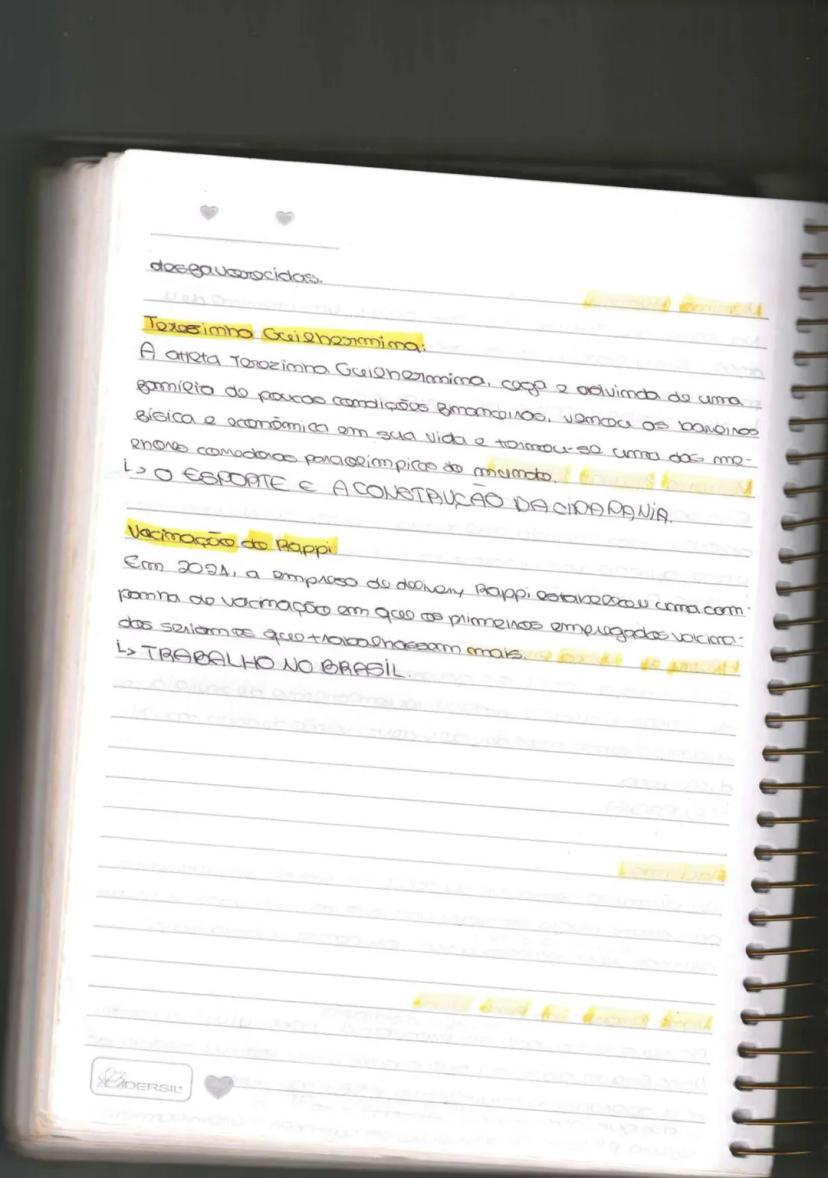 desfavorecidas.
Terezinha Guilhermina:
A atleta Terezinha Guilhermina, cega e advinda de uma
família de poucas condições financeiras, venceu as barreiras
física e econômica em sua vida e tornou-se uma das me-
lhores corredoras paraolímpicas do mundo.
↳ O ESPORTE E A CONSTRUÇÃO DA CIDADANIA.
Vacinação do Rappi
Em 2021, a empresa de delivery Rappi estabeleceu uma cam-
panha de vacinação em que os primeiros empregados vacina-
dos seriam os que trabalhassem mais.
↳ TRABALHO NO BRASIL.
DERSIL